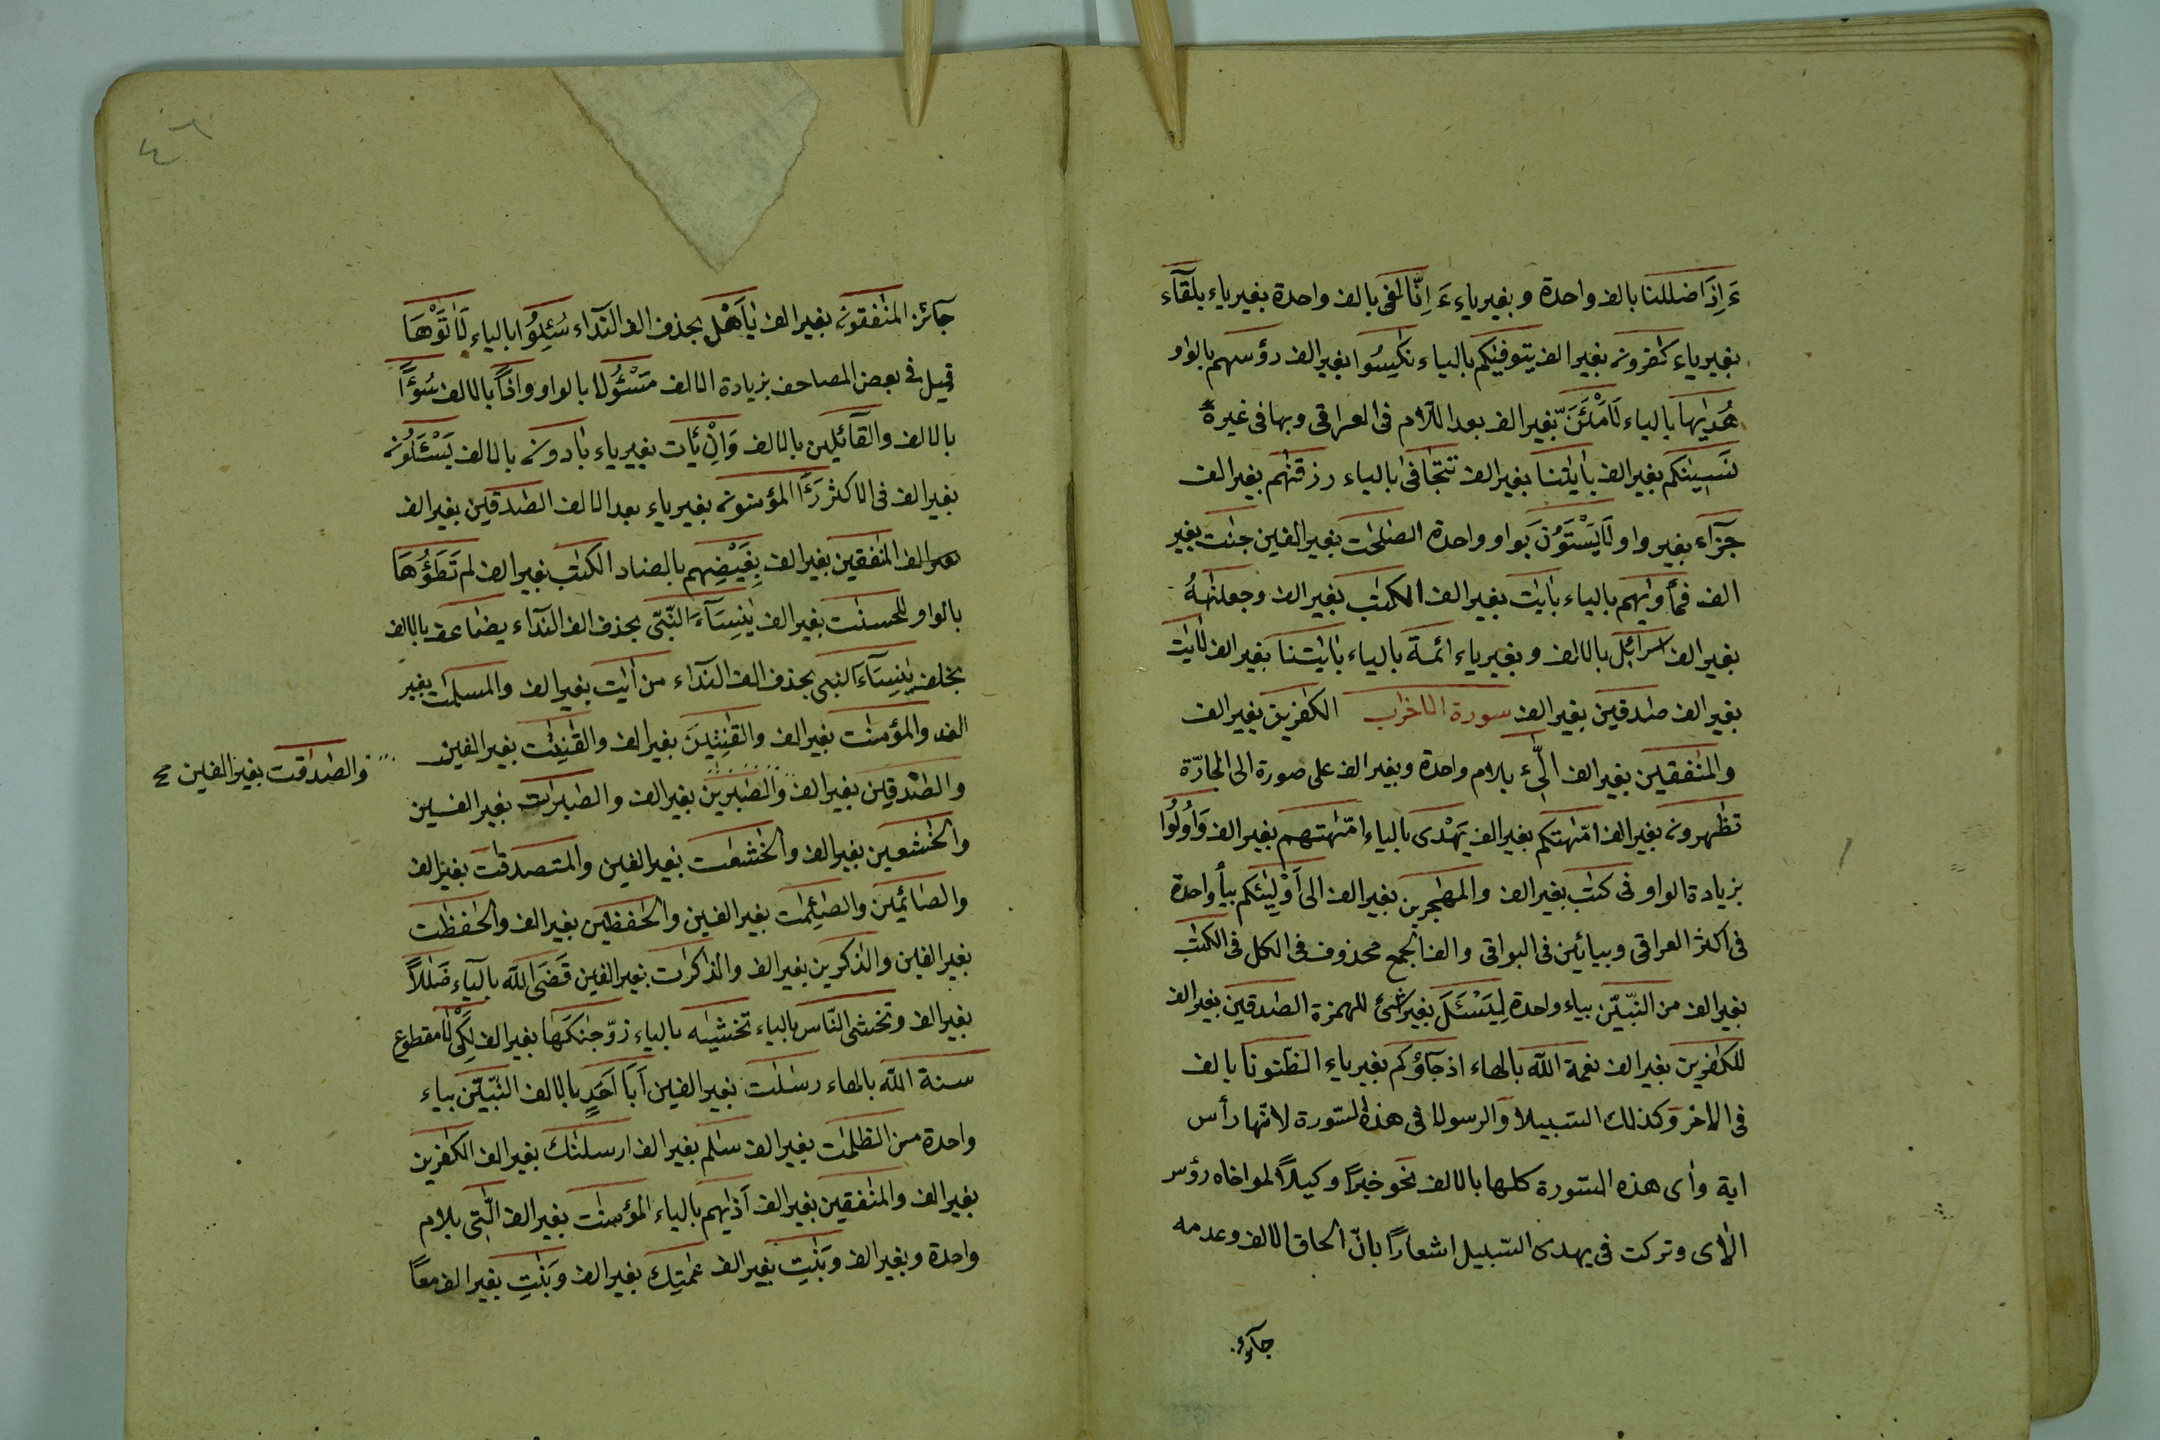 ءَاِذَا ضللنا بالف واحدة و بغير ياء ءَاِنَّا لفى بالف واحدة بغير ياء بلقآء
بغير ياء كٰفرونه بغير الف يتوفيٰكم بالياء نٰكِسُوا بغير الف رؤسهم بالواو
هُدٰيها بالياء لَاَمْلَئَنّ بغير الف بعد اللام فى العراقى وبها فى غيره
نَسِيٰنكم بغير الف بايٰتنا بغير الف تتجافى بالياء رزقنٰهم بغير الف
جَزَآء بغير واو لَا يَسْتَوٗنَ بواو واحدة الصٰلحٰت بغير الفين جنٰت بغير
الف فمأوٰيهم بالياء بايٰت بغير الف الكتٰب بغير الف وجعلنٰهُ
بغير الف اسرائل بالالف و بغير ياء ائمة بالياء بايٰتنا بغير الف لايٰت
بغير الف صٰدقين بغير الف سورة الاخراب الكٰفرين بغير الف
والمنٰفقين بغير الف الّٰئ بلام واحدة وبغير الف على صورة الى الجارّة
تظٰهرونه بغير الف امّهٰتكم بغير الف يَهْدى بالياء امّهٰتهم بغير الف وَاُولُوا
بزيادة الواو فى كتٰب بغير الف والمهٰجرين بغير الف الى اَوْلِيٰئكم بيأ واحدة
فى اكثر العراقى وبيائين فى البواقى والف الجمع محذوف فى الكل فى الكتٰب
بغير الف من النّبيّٖن بياء واحدة لِيَسْئَلَ بغير شئ للهمزة الصٰدقين بغير الف
للكٰفرين بغير الف نعمة اللّه بالهاء اذ جآؤكم بغير ياء الظنونا بالف
فى الاخر وكذلك السّبيلا والرسولا فى هذه السّورة لانّها رأس
اية واٰى هذه السّورة كلها بالالف نحو خبيرًا وكيلاً لمواخاه رؤس
الاٰى وتركت فى يهدى السّبيل اشعارًا بانّ الحاق الالف وعدمه
جآئز
جآئز المنٰفقونه بغير الف يٰاَهْل بحذف الف النّدآء سُئِلُوا بالياء لَاٰتَوْهَا
قيل فى بعض المصاحف بزيادة الالف مَسْئُولا بالواو واذاً بالالف سُوْٓءًا
بالالف والقآئلين بالالف وَاِنْ يَأت بغير ياء بٰادونه بالالف يَسْئَلُونه
بغير الف فى الاكثر رَءَا المؤمنونه بغير ياء بعد الالف الصٰدقين بغير الف
بغير الف المنٰفقين بغير الف بِغَيْضِهم بالضاد الكتٰب بغير الف لم تَطَؤُهَا
بالواو للمحسنٰت بغير الف يٰنِسَآءَ النّبّى بحذف الف النّدآء يضاعف بالالف
بخلف يٰنِسَآءَ النبى بحذف الف النّدآء من ايٰت بغير الف والمسلمٰت بغير
الف والمؤمنٰت بغير الف والقٰنِتِينَ بغير الف والقٰنِتٰت بغير الفين
والصٰدقين بغير الف والصٰبرين بغير الف والصٰبرات بغير الفين
والصٰدقٰت بغير الفين صح
والخٰشعين بغير الف والخٰشعٰت بغير الفين والمتصدقٰت بغير الف
والصٰائمين والصٰئِمٰت بغير الفين والحٰفظين بغير الف والحٰفظٰت
بغير الفين والذٰكرين بغير الف والذٰكرات بغير الفين قَضَى اللّه بالياء ضَلٰلاً
بغير الف وتخشى النّاس بالياء تخشيٰه بالياء زوّجنٰكَهَا بغير الف لِكَىْ لَا مقطوع
سنة اللّه بالهاء رسٰلٰت بغير الفين اَبَا اَحَدٍ بالالف النّبيّٖن بياء
واحدة من الظلمٰت بغير الف سلٰم بغير الف ارسلنٰك بغير الف الكٰفرين
بغير الف والمنٰفقين بغير الف اَذٰيهم بالياء المؤمنٰت بغير الف الّٰتى بلام
واحدة وبغير الف وبَنٰتِ بغير الف عمٰتِك بغير الف وَبَنٰتِ بغير الف معًا